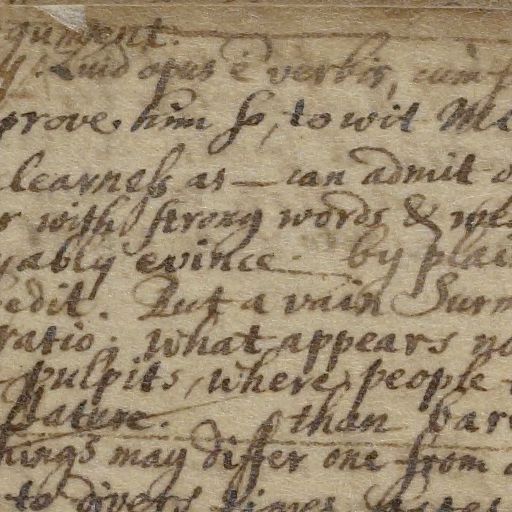 gument.
Quid opus è verbis, cum
prove him so, to wit Me
learness as — can admit o
r with strong words & wea
yably evince. by plai
edit. But a vain Surm
ratio; what appears no
pulpits, where people
Nature. than bar
hings may differ one from a
to divers times, actes